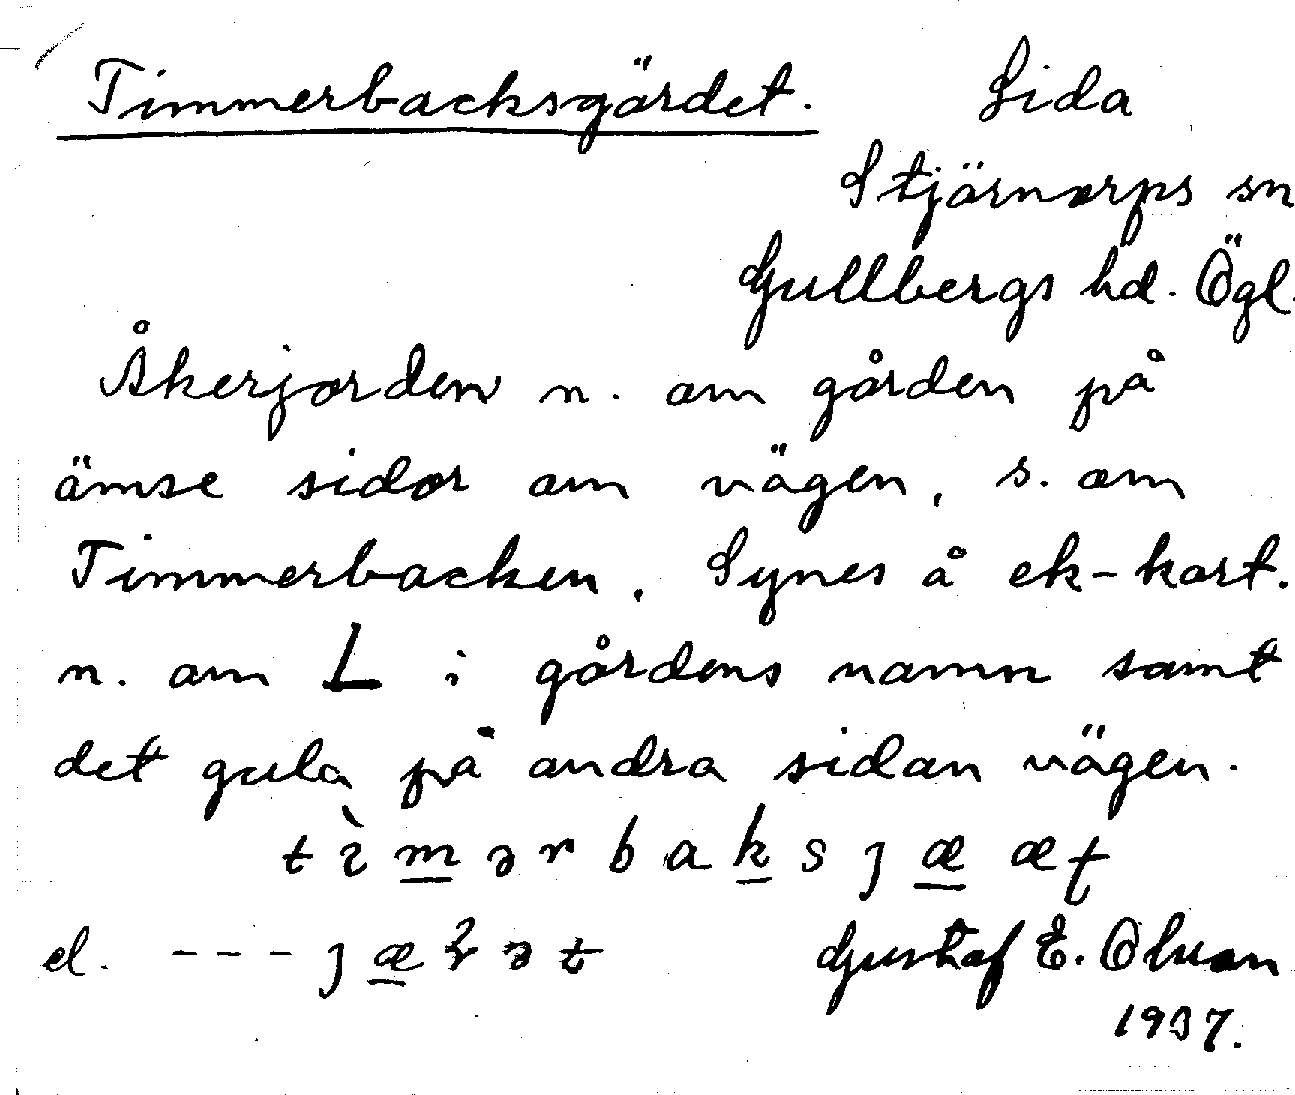 Timmerbacksgärdet. Lida
Stjärnorps sn
Gullbergs hd. Ögl.
Åkerjorden n. om gården på
ömse sidor om vägen, s. om
Timmerbacken. Synes å ek-kart.
n. om L i gårdens namn samt
det gula på andra sidan vägen.
tìmərbaksjæ æt
el. --- jæ ət Gustaf E. Olsson
1937.